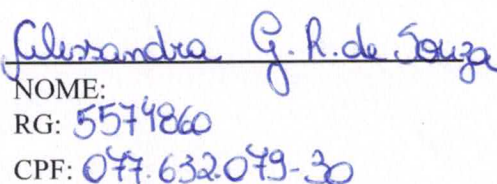 Alessandra G. R. de Souza
NOME:
RG: 5574860
CPF: 077.632.079-30